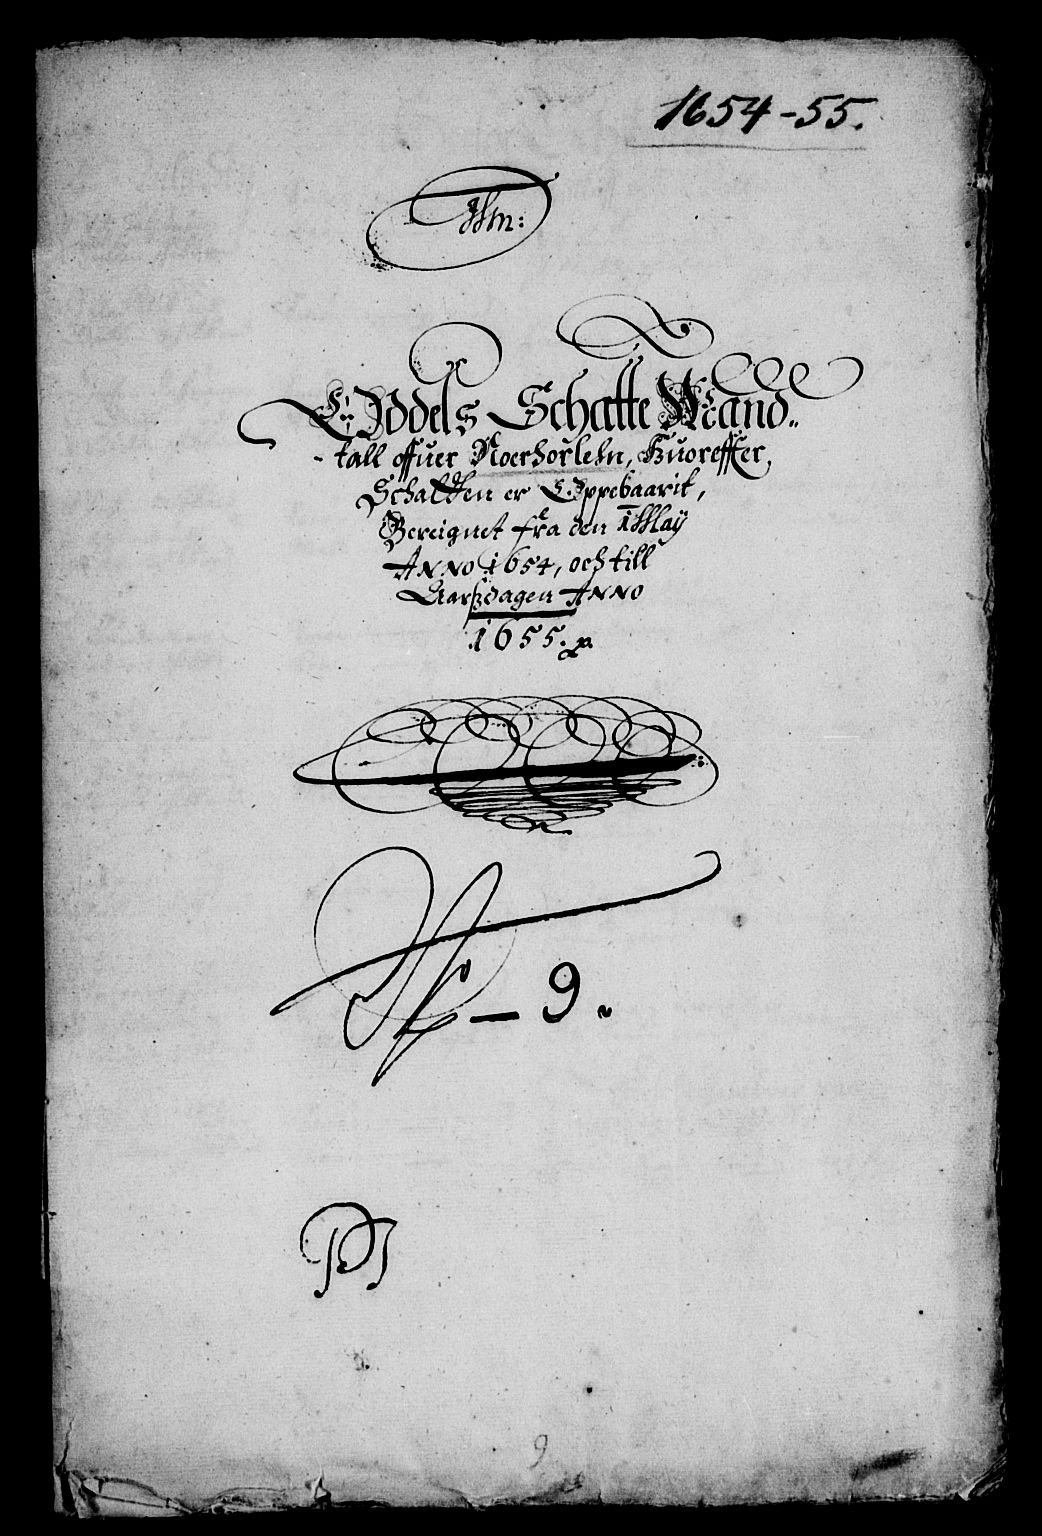 1654-55.
Oddels Schatte Mand..
-tall offuer Noerhorlehn, Huoreffter
Schatten er Oppebaarit,
Bereignet fra den 1 May
Anno 1654, och till
Aarszdagen Anno
1655.
9.
9